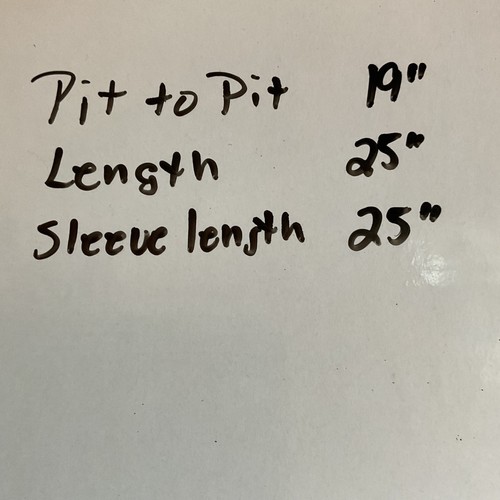 Pit to Pit 19"
Length 25"
Sleeve length 25"